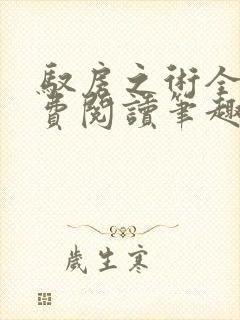 馭房之術全
費閱讀筆趣
歲生寒